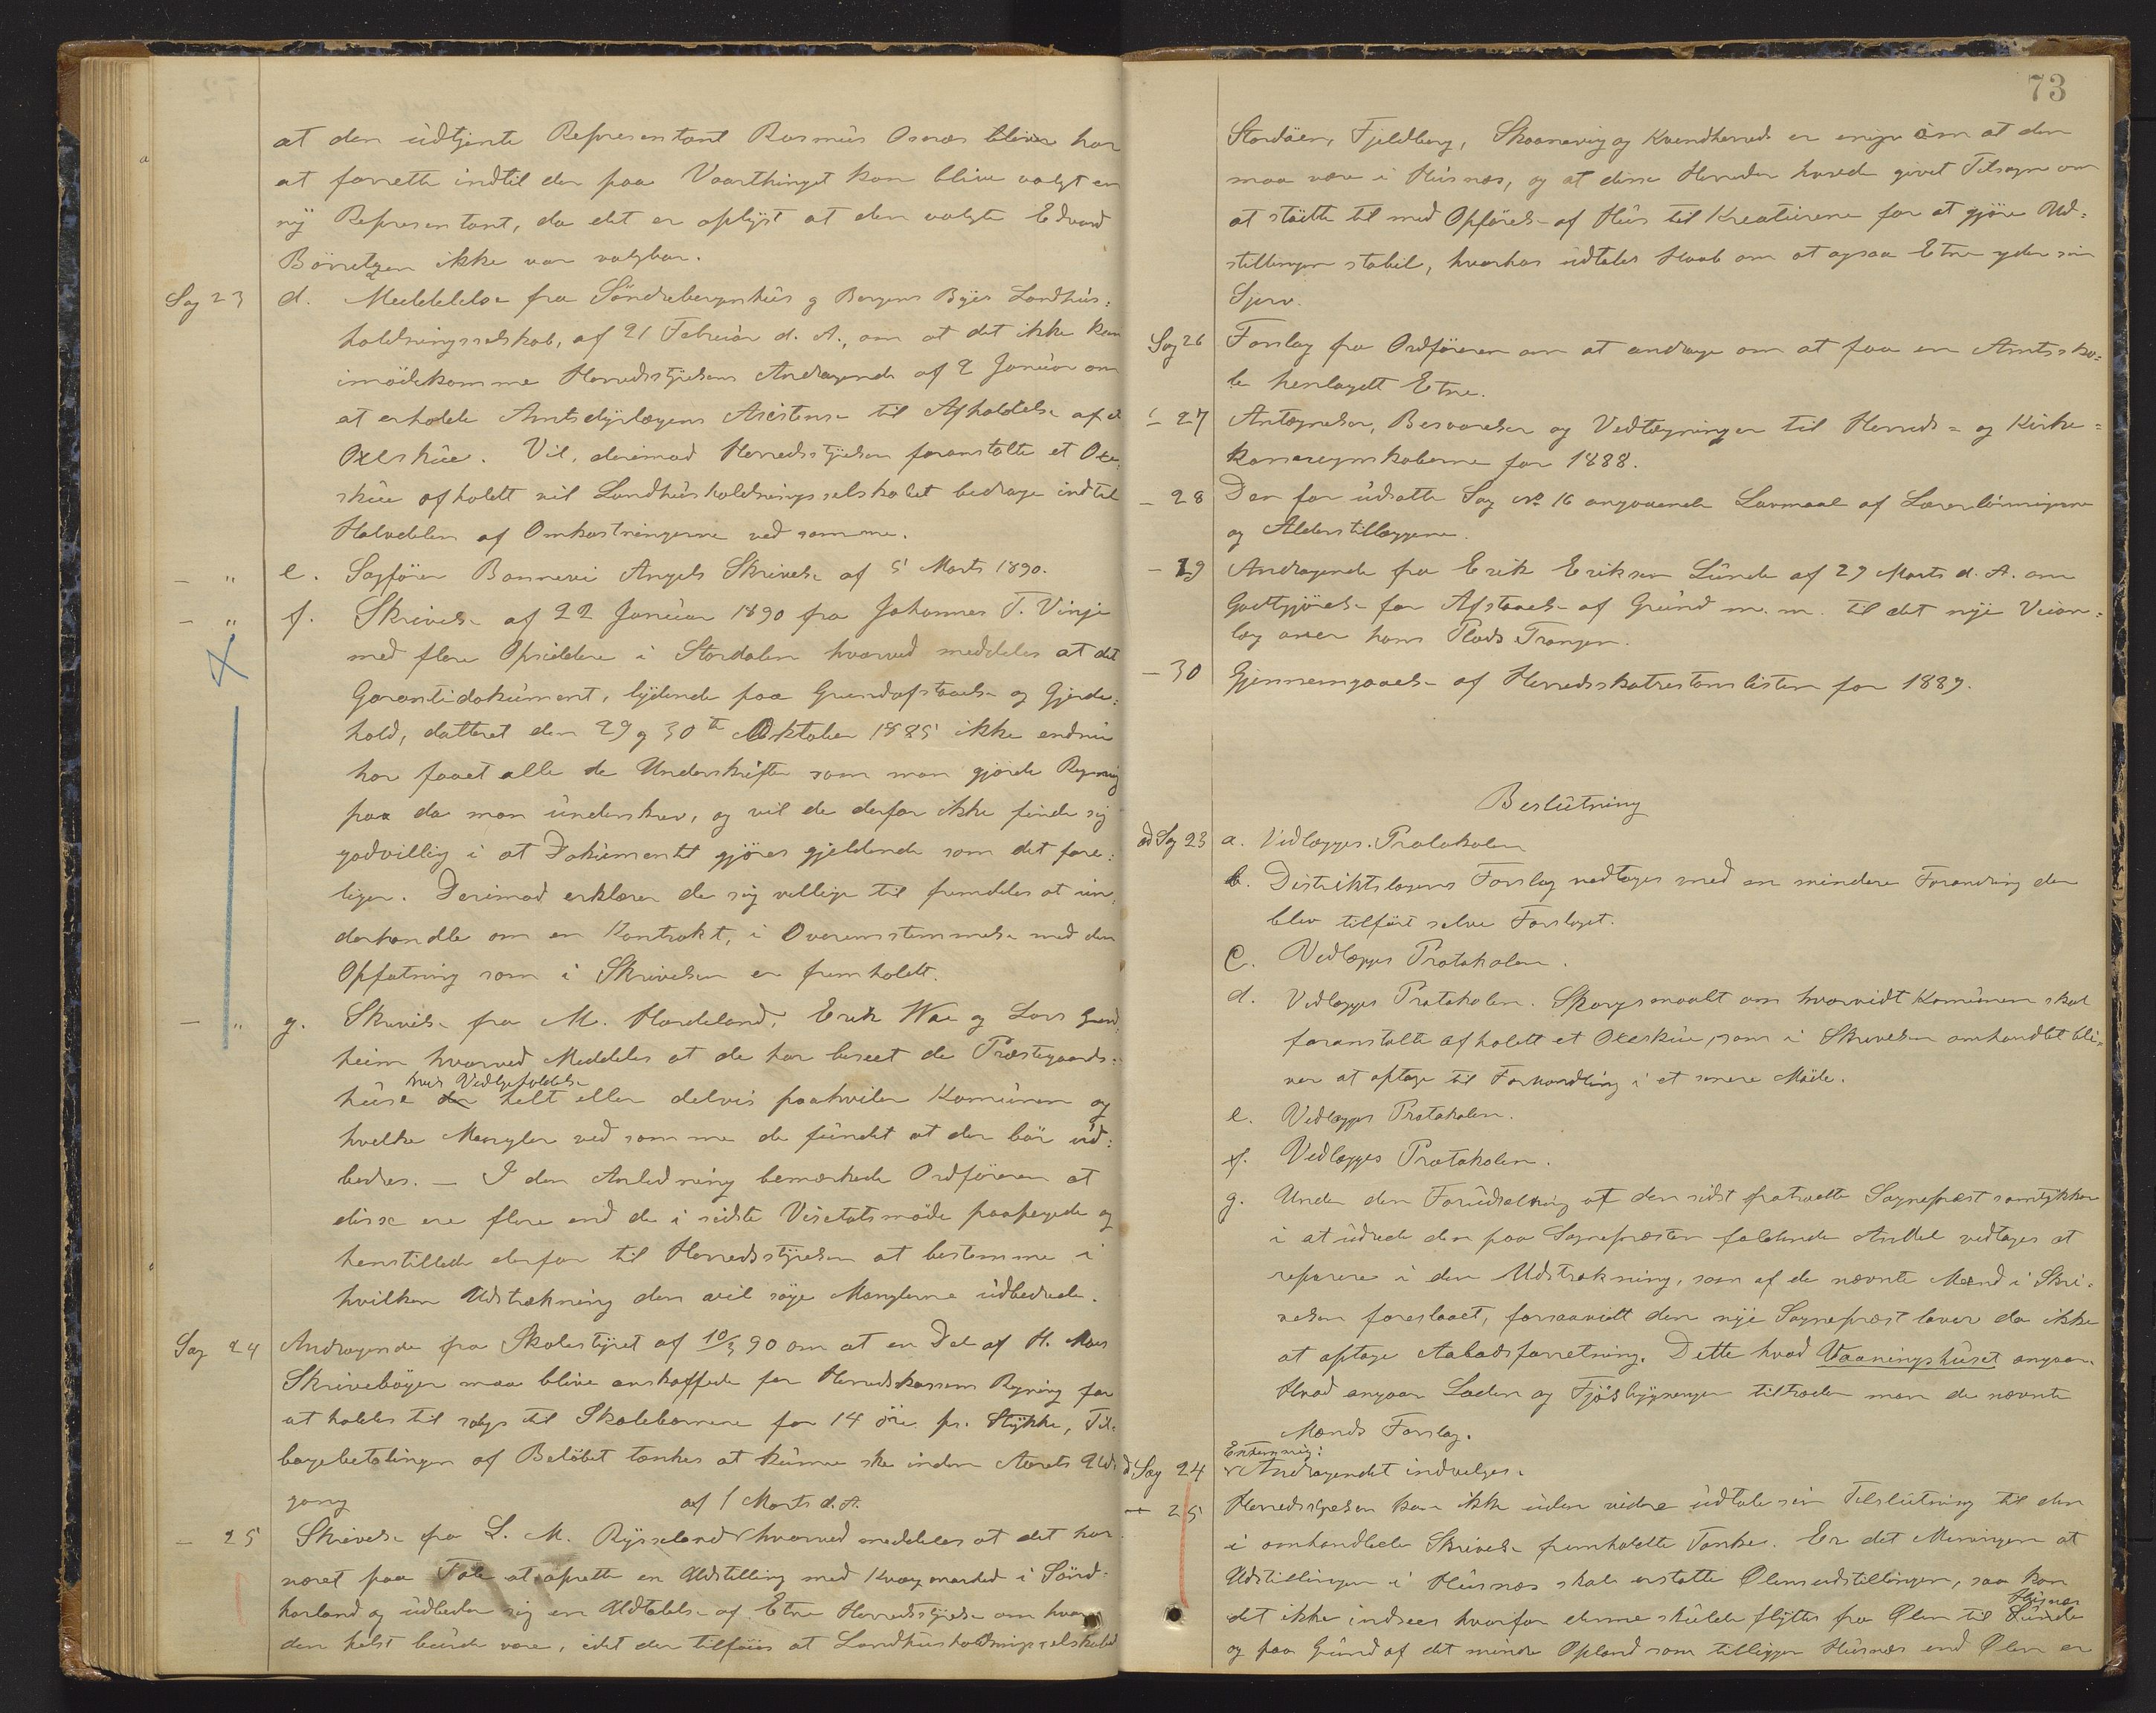 at den udtjente Representant Rasmus Osnes bliver har
at forrette indtil der paa Vaarthinget kan blive valgt en
ny Representant, da det er oplyst at den valgte Edvard
Börretzen ikke var valgbar.
Sag 23 d. Meddelelse fra Söndrebergenhus og Bergens Byes Landhus=
holdningsselskab, af 21 Februar d. A., om at det ikke kan
imödekomme Herredsstyrelsens Andragende af 2 Januar om
at erholde Amtsdyrlægens Asistense til Afholdelse af et
Oxeskue. Vil, derimod Herredsstyrelsen foranstalte et Oxe=
skue afholdt vil Landhusholdningsselskabet bedrage indtil
Halvdelen af Omkostningerne ved samme.
— " e. Sagförer Bonnevi Angels Skrivelse af 5 Marts 1890.
— " f. Skrivelse af 22 Januar 1890 fra Johannes T. Vinje
med flere Opsiddere i Stordalen hvorved meddeles at det
Garantidokument, lydende paa Grundafstaaelse og Gjerde=
hold, datteret den 29 og 30te Oktober 1885 ikke endnu
har faaet alle de Underskrifter som man gjorde Regning
paa da man underskrev, og vil de derfor ikke finde sig
godvillig i at Dokumentet gjöres gjeldende som det fore=
liger. Derimod erklærer de sig villige til fremdeles at un=
derhandle om en Kontrakt, i Overensstemmelse med den
Opfatning som i Skrivelsen er fremholdt.
— " g. Skrivelse fra M. Hardeland, Erik Wae og Lars Grind=
heim hvorved Meddeles at de har beseet de Præstegaards=
hvis Vedligeholdelse
huse der helt eller delvis paahviler Komunen og
hvilke Mangler ved samme de fundet at der bör ud=
bedres. — I den Anledning bemærkede Ordföreren at
disse ere flere end de i sidste Visetatsmöde paapegede og
henstillede derfor til Herredsstyrelsen at bestemme i
hvilken Udstrækning den vil söge Manglerne udbedrede.
Sag 24 Andragende fra Skolestyret af 10/3 90 om at en Del af H. Moes
Skriveböger maa blive anskaffede for Herredskassens Regning for
at holdes til salgs til Skolebörnene for 14 öre pr. Stykke, Til=
bagebetalingen af Belöbet tænkes at kunne ske inden Aarets Ud=
gang
af 1 Marts d. A.
— 25 Skrivelse fra L. M. Rysseland hvorved meddeles at det har
været paa Tale at oprette en Udstilling med Kvægmarked i Sönd=
horland og udbeder sig en Udtalelse af Etne Herredsstyrelse om hvor
den helst burde være, idet der tilföies at Landhusholdningsselskabet
73
Stordöen, Fjeldberg, Skaanevig og Kvindherred er enige om at den
maa være i Husnæs, og at disse Herreder havde givet Tilsagn om
at stötte til med Opförelse af Hus til Kreaturene for at gjöre Ud=
stillingen stabil, hvorhos udtales Haab om at ogsaa Etne yder sin
Skjerv.
Sag 26 Forslag fra Ordföreren om at andrage om at faa en Amtssko=
le henlagdt Etne.
— 27 Antegnelser, Besvarelser og Vedtegninger til Herreds= og Kirke=
kasseregnskaberne for 1888.
— 28 Den for udsatte Sag No 16 angaaende Lavmaal af Lærerlönningerne
og Alderstillæggene.
— 29 Andragende fra Erik Eriksen Lunde af 29 Marts d. A. om
Godtgjörelse for Afstaaelse af Grund m. m. til det nye Veian=
læg over hans Plads Trangen.
— 30 Gjennemgaaelse af Herredsskatrestanslisten for 1889.
Beslutning
ad Sag 23 a. Vedlægges Protokolen
b. Distriktslægens Forslag vedtages med en mindere Forandring der
blev tilfört selve Forslaget.
c. Vedlægges Protokolen.
d. Vedlægges Protokolen. Spörgsmaalet om hvorvidt Komunen skal
foranstalte afholdt et Oxeskue, som i Skrivelsen omhandlet bli=
ver at optage til Forhandling i et senere Möde.
e. Vedlægges Protokolen.
f. Vedlægges Protokolen.
g. Under den Forudsætning at den sidst fratraadte Sognepræst samtykker
i at udrede den paa Sognepræsten faldende Anddel vedtages at
reparere i den Udstrækning, som af de nævnte Mænd i Skri=
velsen foreslaaet, forsaavidt den nye Sognepræst lover da ikke
at optage Aabodsforretning. Dette hvad Vaaningshuset angaar.
Hvad angaar Laden og Fjösbygningen tiltræder man de nævnte
Mænds Forslag.
Enstemmig:
ad Sag 24 Andragendet indvelges.
— 25 Herredsstyrelsen kan ikke uden videre udtale sin Tilslutning til den
i omhandlede Skrivelse fremholdte Tanke. Er det Meningen at
Udstillingen i Husnæs skal erstatte Ølensudstillingen, saa kan
Husnæs
det ikke indsees hvorfor denne skulde flyttes fra Ølen til Sunde
og paa Grund af det mindre Opland som tilligger Husnæs end Ølen er